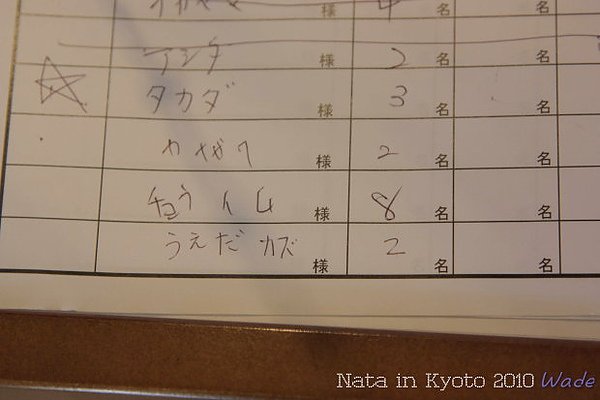 様 4 名 名
アシダ 様 2 名 名
タカダ 様 3 名 名
様 2 名 名
チョウ 様 8 名 名
うえだ カズ 様 2 名 名
Nata in Kyoto 2010 Wade